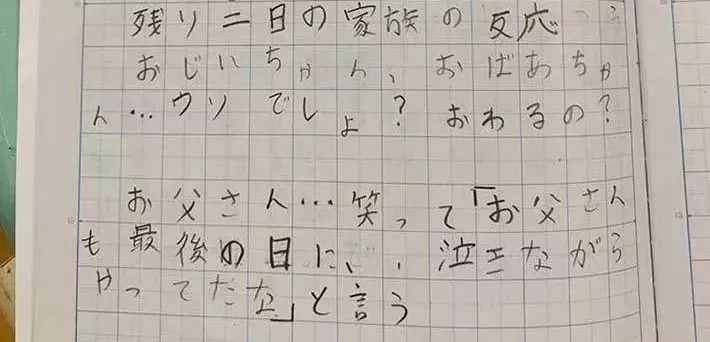 残り二日の家族の反応
おじいちゃん、おばあちゃ
ん…ウソでしょ？おわるの？
お父さん…笑って「お父さん
も最後の日に、泣きながら
やってたな」と言う